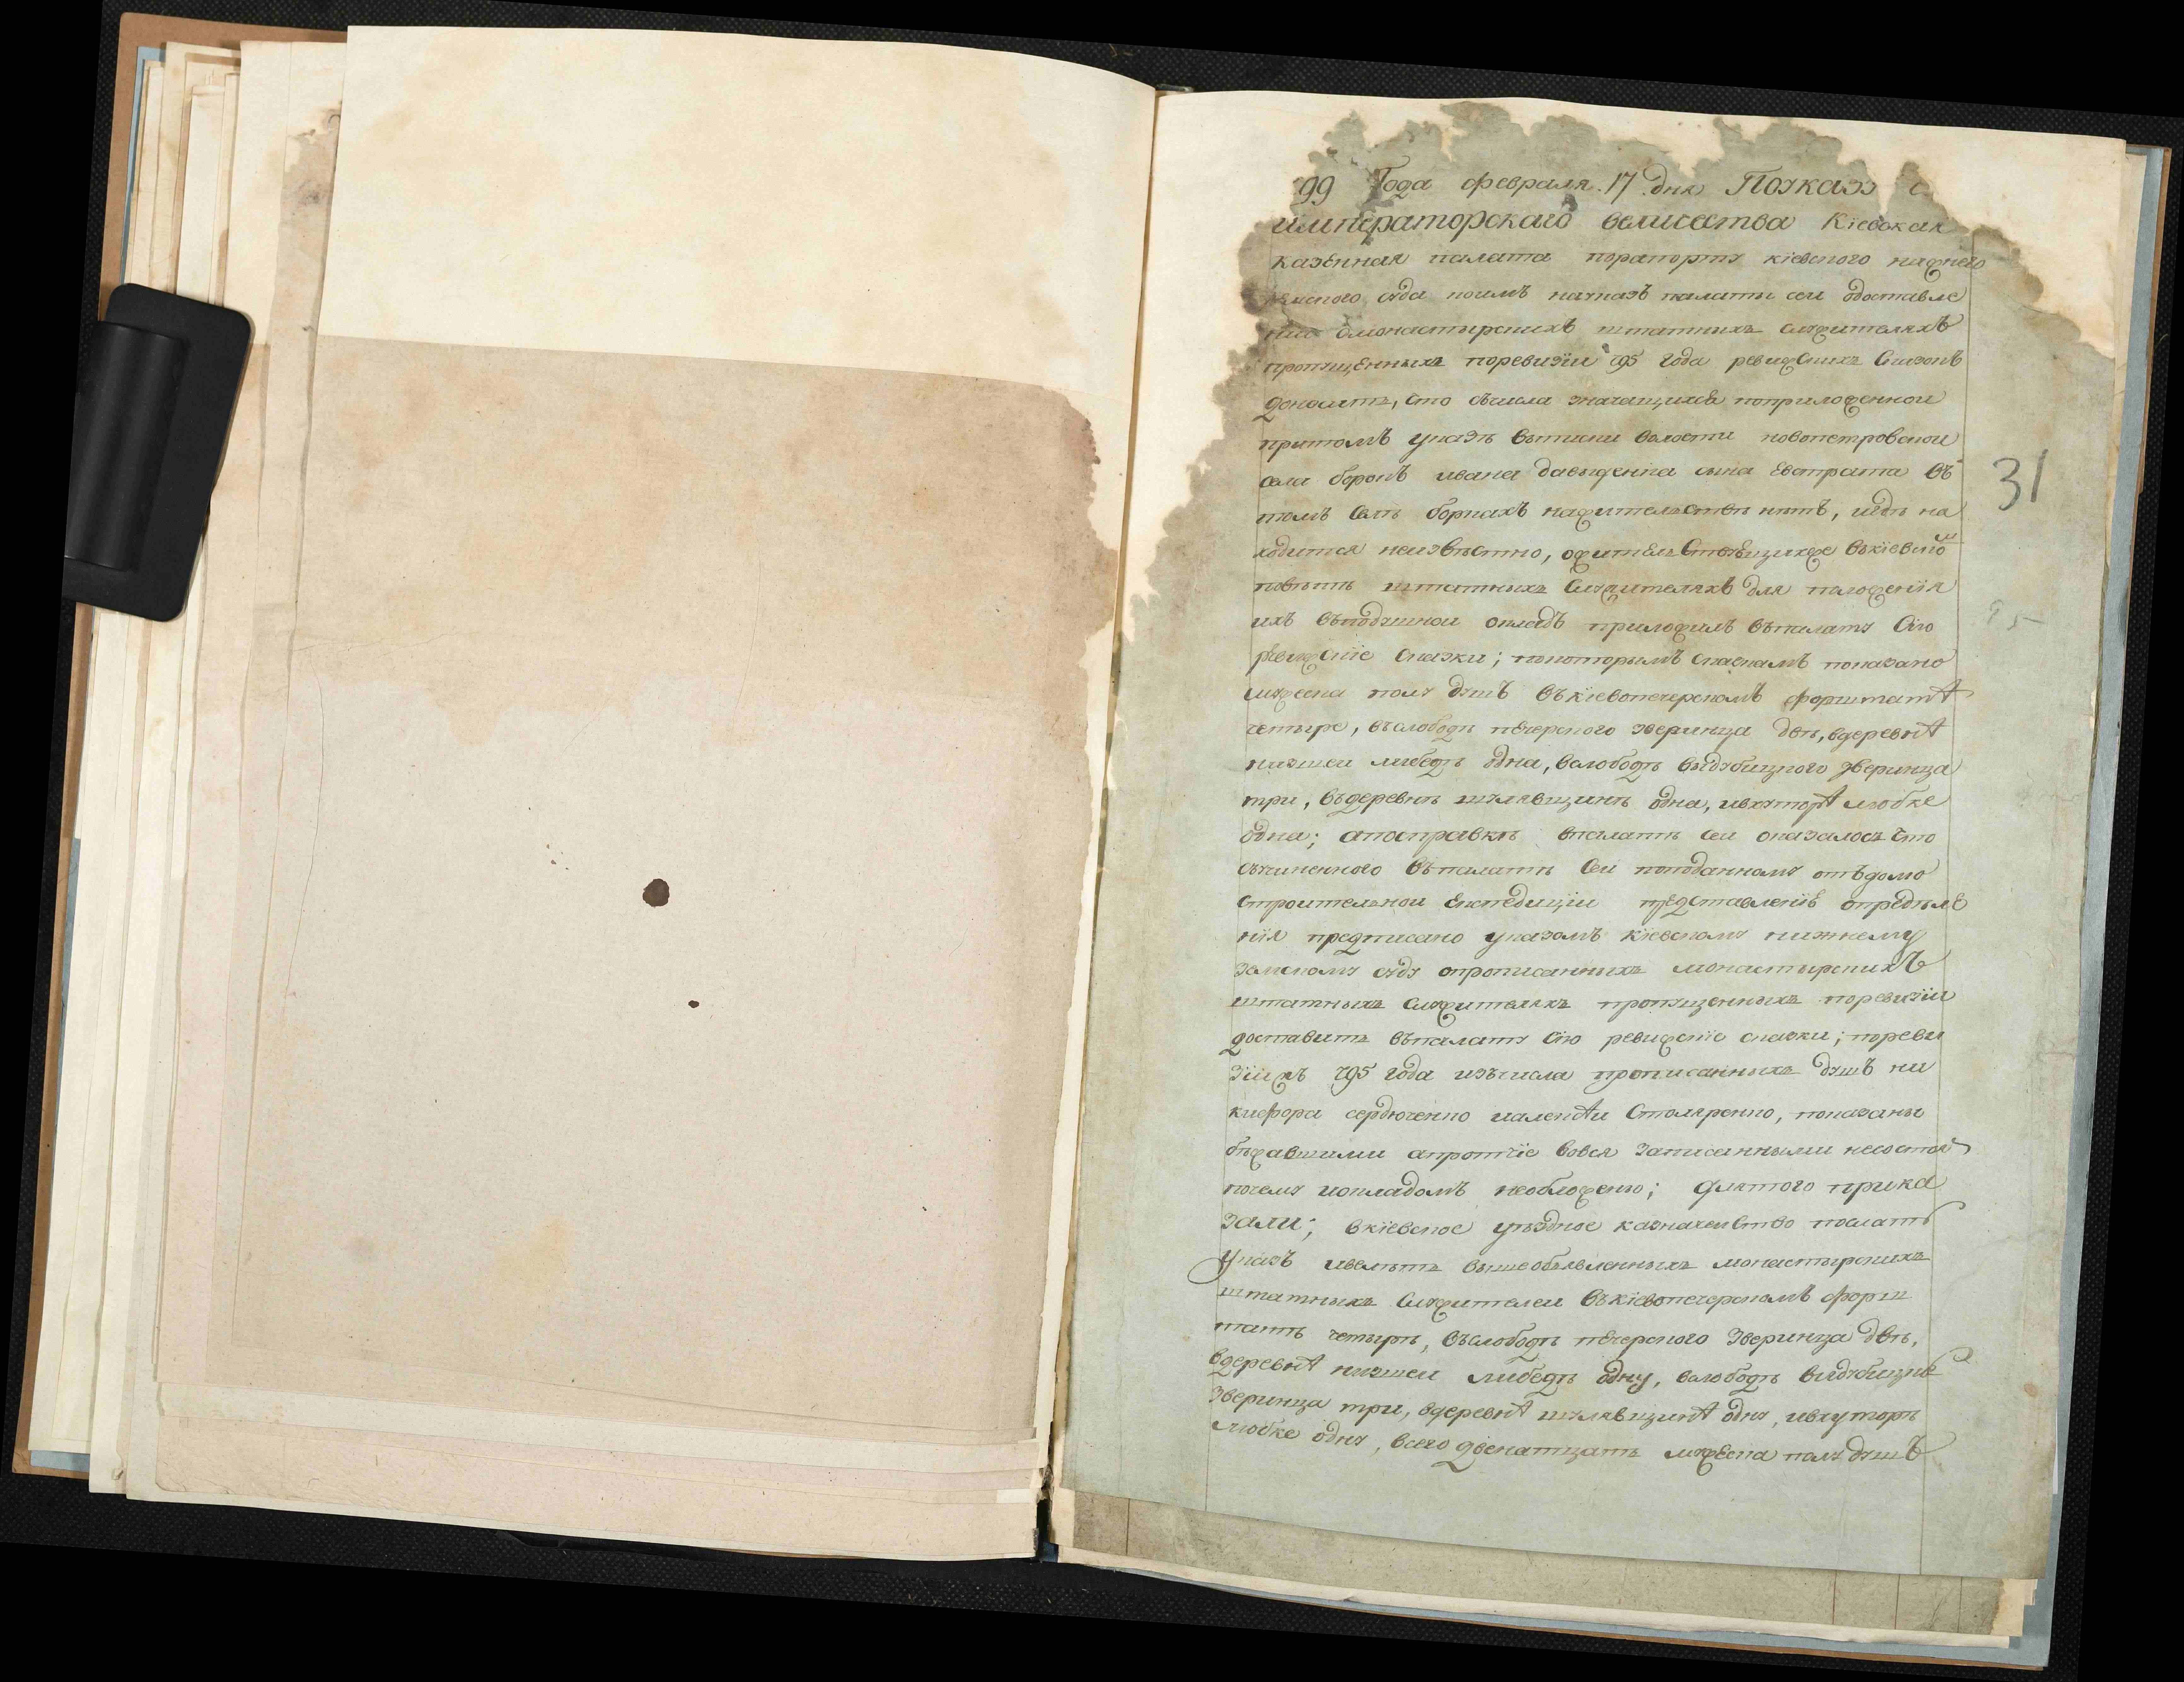 99 Года февраля 17 дня Поуказу е
императорскаго величества Кіевская
казенная палата порапорту кіевского нижнего
земского суда коимъ науказъ палаты сеи одоставле
нии омонастырскихъ штатныхъ служителяхъ
пропущенныхъ поревизіи 795 года ревижскихъ Сказокъ
доноситъ, что счисла значащихся поприложенной
притомъ указѣ выписки волости новопетровской
села борокъ ивана давыденка сына Евстрата въ
томъ селѣ боркахъ нажителствѣ нетъ, игдѣ на
ходится неизвѣстно, ожителствующихже вкіевско
повѣтѣ штатныхъ служителяхъ для положенія
ихъ въподушной окладъ приложилъ въпалату Сію
ревижскіе сказки; покоторымъ сказкамъ показано
мужеска полу душъ въкіевопечерскомъ форштатѣ
четыре, въслободѣ печерского зверинца двѣ, вдеревнѣ
низшеи либедѣ одна, вслободѣ выдубицкого зверинца
три, въдеревнѣ шулявщинѣ одна, ивхуторѣ любке
одна; апосправкѣ впалатѣ сеи оказалось что
счиненного въпалатѣ Сеи поподанному отъдомо
строительной експедиціи представленіе опредѣле
нія предписано указомъ кіевскому нижнему
земскому суду опрописанныхъ монастырскихъ
штатныхъ служителяхъ пропущенныхъ поревизіи
доставить въпалату Сію ревижскіе сказки; пореви
зіижъ 795 года изъчисла прописанныхъ душъ ни
кифора сердюченко иалексѣи Столяренко, показаны
бежавшими апротчіе вовся записанными несостоя
почему иокладомъ необложено; длятого прика
зали; вкіевское уѣздное казначейство послать
указъ ивелѣть вышеобъявленныхъ монастырскихъ
штатныхъ служителеи въкіевопечерскомъ форш
татѣ четырѣ, въслободѣ печерского зверинца двѣ,
вдеревнѣ низшеи либедѣ одну, вслободѣ выдубицко
зверинца три, вдеревнѣ шулявщинѣ одну, ивхуторѣ
любке одну, всего двенатцать мужеска полу душъ
31